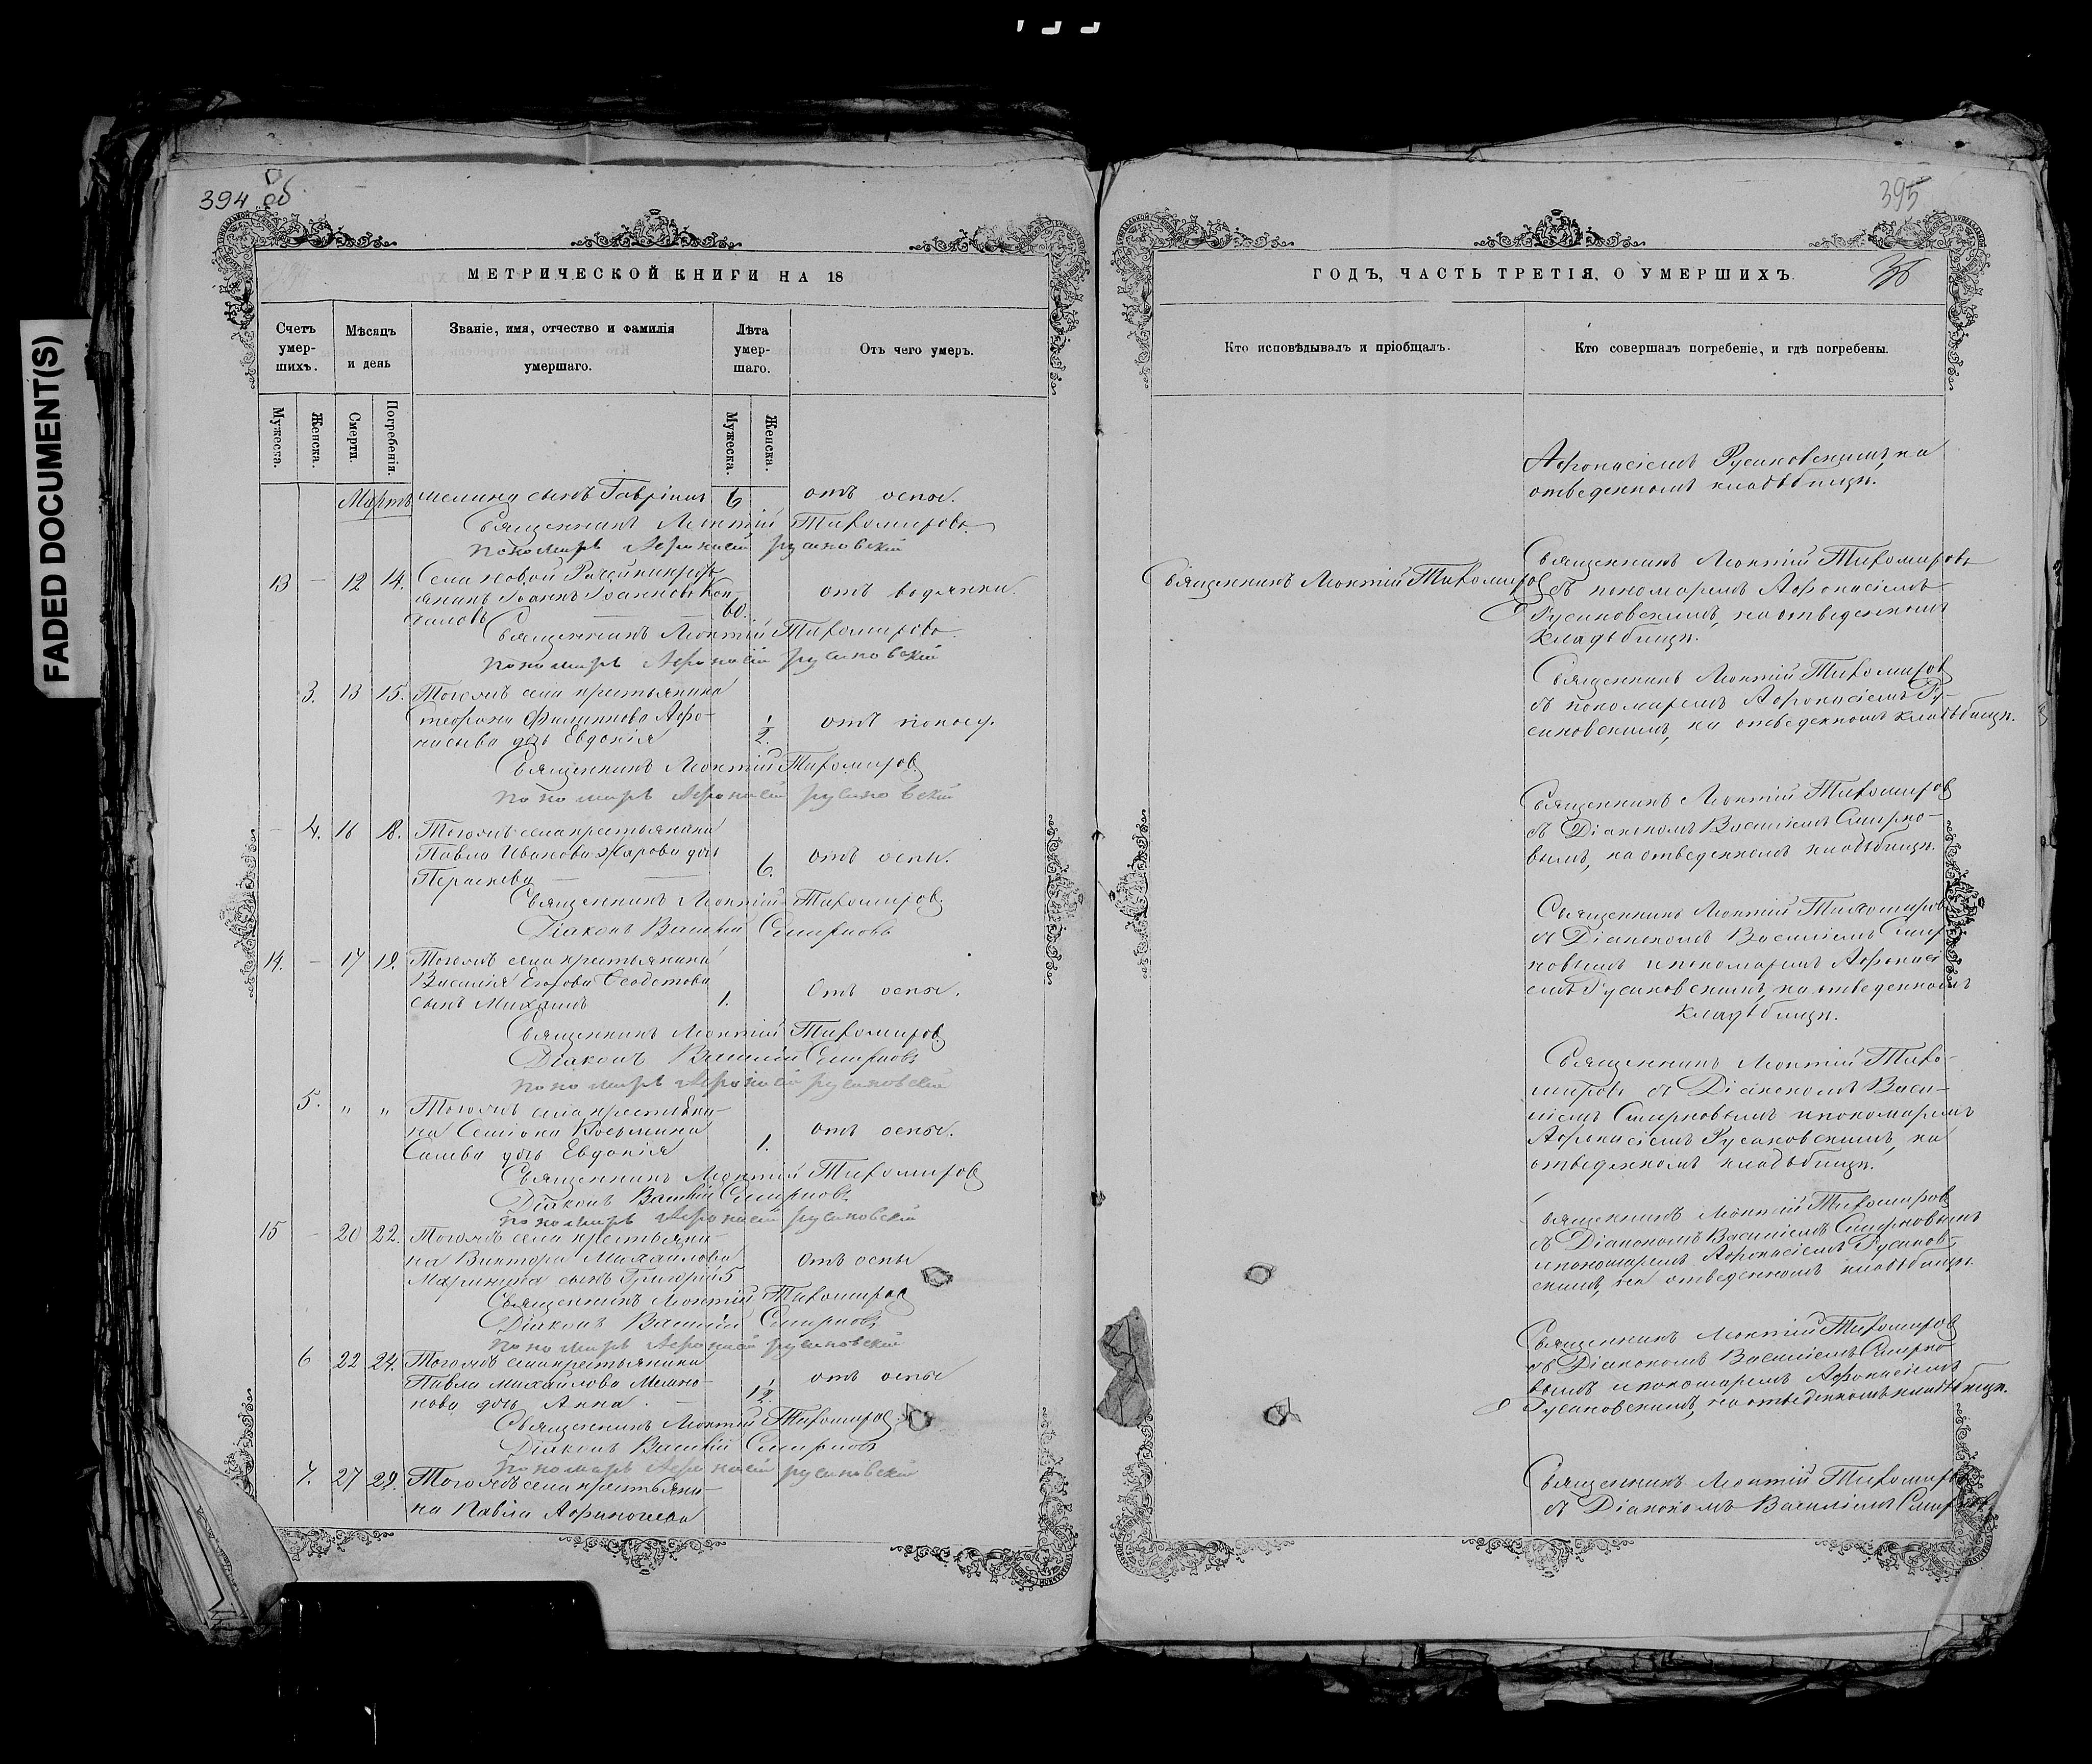 FADED DOCUMENT(S)
394 об
МЕТРИЧЕСКОЙ КНИГИ НА 18
Счетъ умер-шихъ.
Мѣсяцъ и день
Званіе, имя, отчество и фамилія умершаго.
Лѣта умер-шаго.
Отъ чего умеръ.
Мужеска.
Женска.
Смерти.
Погребенія.
Мужеска.
Женска.
Мартъ сынъ Гавріилъ 6 отъ оспы.
Священникъ Леонтій Тихомировъ
пономарь Афонасій Русановскій
13 — 12 14. Села Новой Рачейки кресть-
янинъ Іоаннъ Іоанновъ
60. отъ водянки.
Священникъ Леонтій Тихомировъ.
пономарь Афонасій Русановскій
3. 13 15. Тогожъ села крестьянина
Филиппова Афо-
насьева дочь Евдокія 1/2. отъ поноса.
Священникъ Леонтій Тихомировъ
пономарь Афонасій Русановскій
4. 16 18. Тогожъ села крестьянина
Павла Иванова Жарова дочь
Параскева 6. отъ оспы.
Священникъ Леонтій Тихомировъ
Діаконъ Василій Смирновъ
14. — 17 19. Тогожъ села крестьянина
Василія Егорова
сынъ Михаилъ 1. Отъ оспы.
Священникъ Леонтій Тихомировъ
Діаконъ Василій Смирновъ
пономарь Афонасій Русановскій
5. " " Тогожъ села крестьяни-
на Семіона Козьмина
дочь Евдокія 1. отъ оспы.
Священникъ Леонтій Тихомировъ
Діаконъ Василій Смирновъ
пономарь Афонасій Русановскій
15 — 20 22. Тогожъ села крестьяни-
на Виктора Михаилова
сынъ Григорій 5 Отъ оспы
Священникъ Леонтій Тихомировъ
Діаконъ Василій Смирновъ
пономарь Афонасій Русановскій
6 22 24. Тогожъ села крестьянина
Павла Михайлова
дочь Анна. 1 1/2 отъ оспы
Священникъ Леонтій Тихомировъ.
Діаконъ Василій Смирновъ
пономарь Афонасій Русановскій
7. 27 29. Тогожъ села крестьяни-
на Павла
395
36
ГОДЪ, ЧАСТЬ ТРЕТІЯ, О УМЕРШИХЪ.
Кто исповѣдывалъ и пріобщалъ.
Кто совершалъ погребеніе, и гдѣ погребены.
Афонасіемъ Русановскимъ, на
отведенномъ кладбищѣ.
Священникъ Леонтій Тихомировъ
Священникъ Леонтій Тихомировъ
съ пономаремъ Афонасіемъ
Русановскимъ, на отведенномъ
кладбищѣ.
Священникъ Леонтій Тихомировъ
съ пономаремъ Афонасіемъ Ру-
сановскимъ, на отведенномъ кладбищѣ.
Священникъ Леонтій Тихомировъ
съ Діакономъ Василіемъ Смирно-
вымъ, на отведенномъ кладбищѣ.
Священникъ Леонтій Тихомировъ
съ Діакономъ Василіемъ Смир
новымъ и пономаремъ Афонасі
емъ Русановскимъ, на отведенномъ
кладбищѣ.
Священникъ Леонтій Тихо-
мировъ съ Діакономъ Васи-
ліемъ Смирновымъ и пономаремъ
Афонасіемъ Русановскимъ, на
отведенномъ кладбищѣ.
Священникъ Леонтій Тихомировъ
съ Діакономъ Василіемъ Смирновымъ
и пономаремъ Афонасіемъ Русанов-
скимъ, на отведенномъ кладбищѣ.
Священникъ Леонтій Тихомировъ
съ Діакономъ Василіемъ Смирно
вымъ и пономаремъ Афонасіемъ
Русановскимъ, на отведенномъ кладбищѣ.
Священникъ Леонтій Тихомировъ
съ Діакономъ Василіемъ